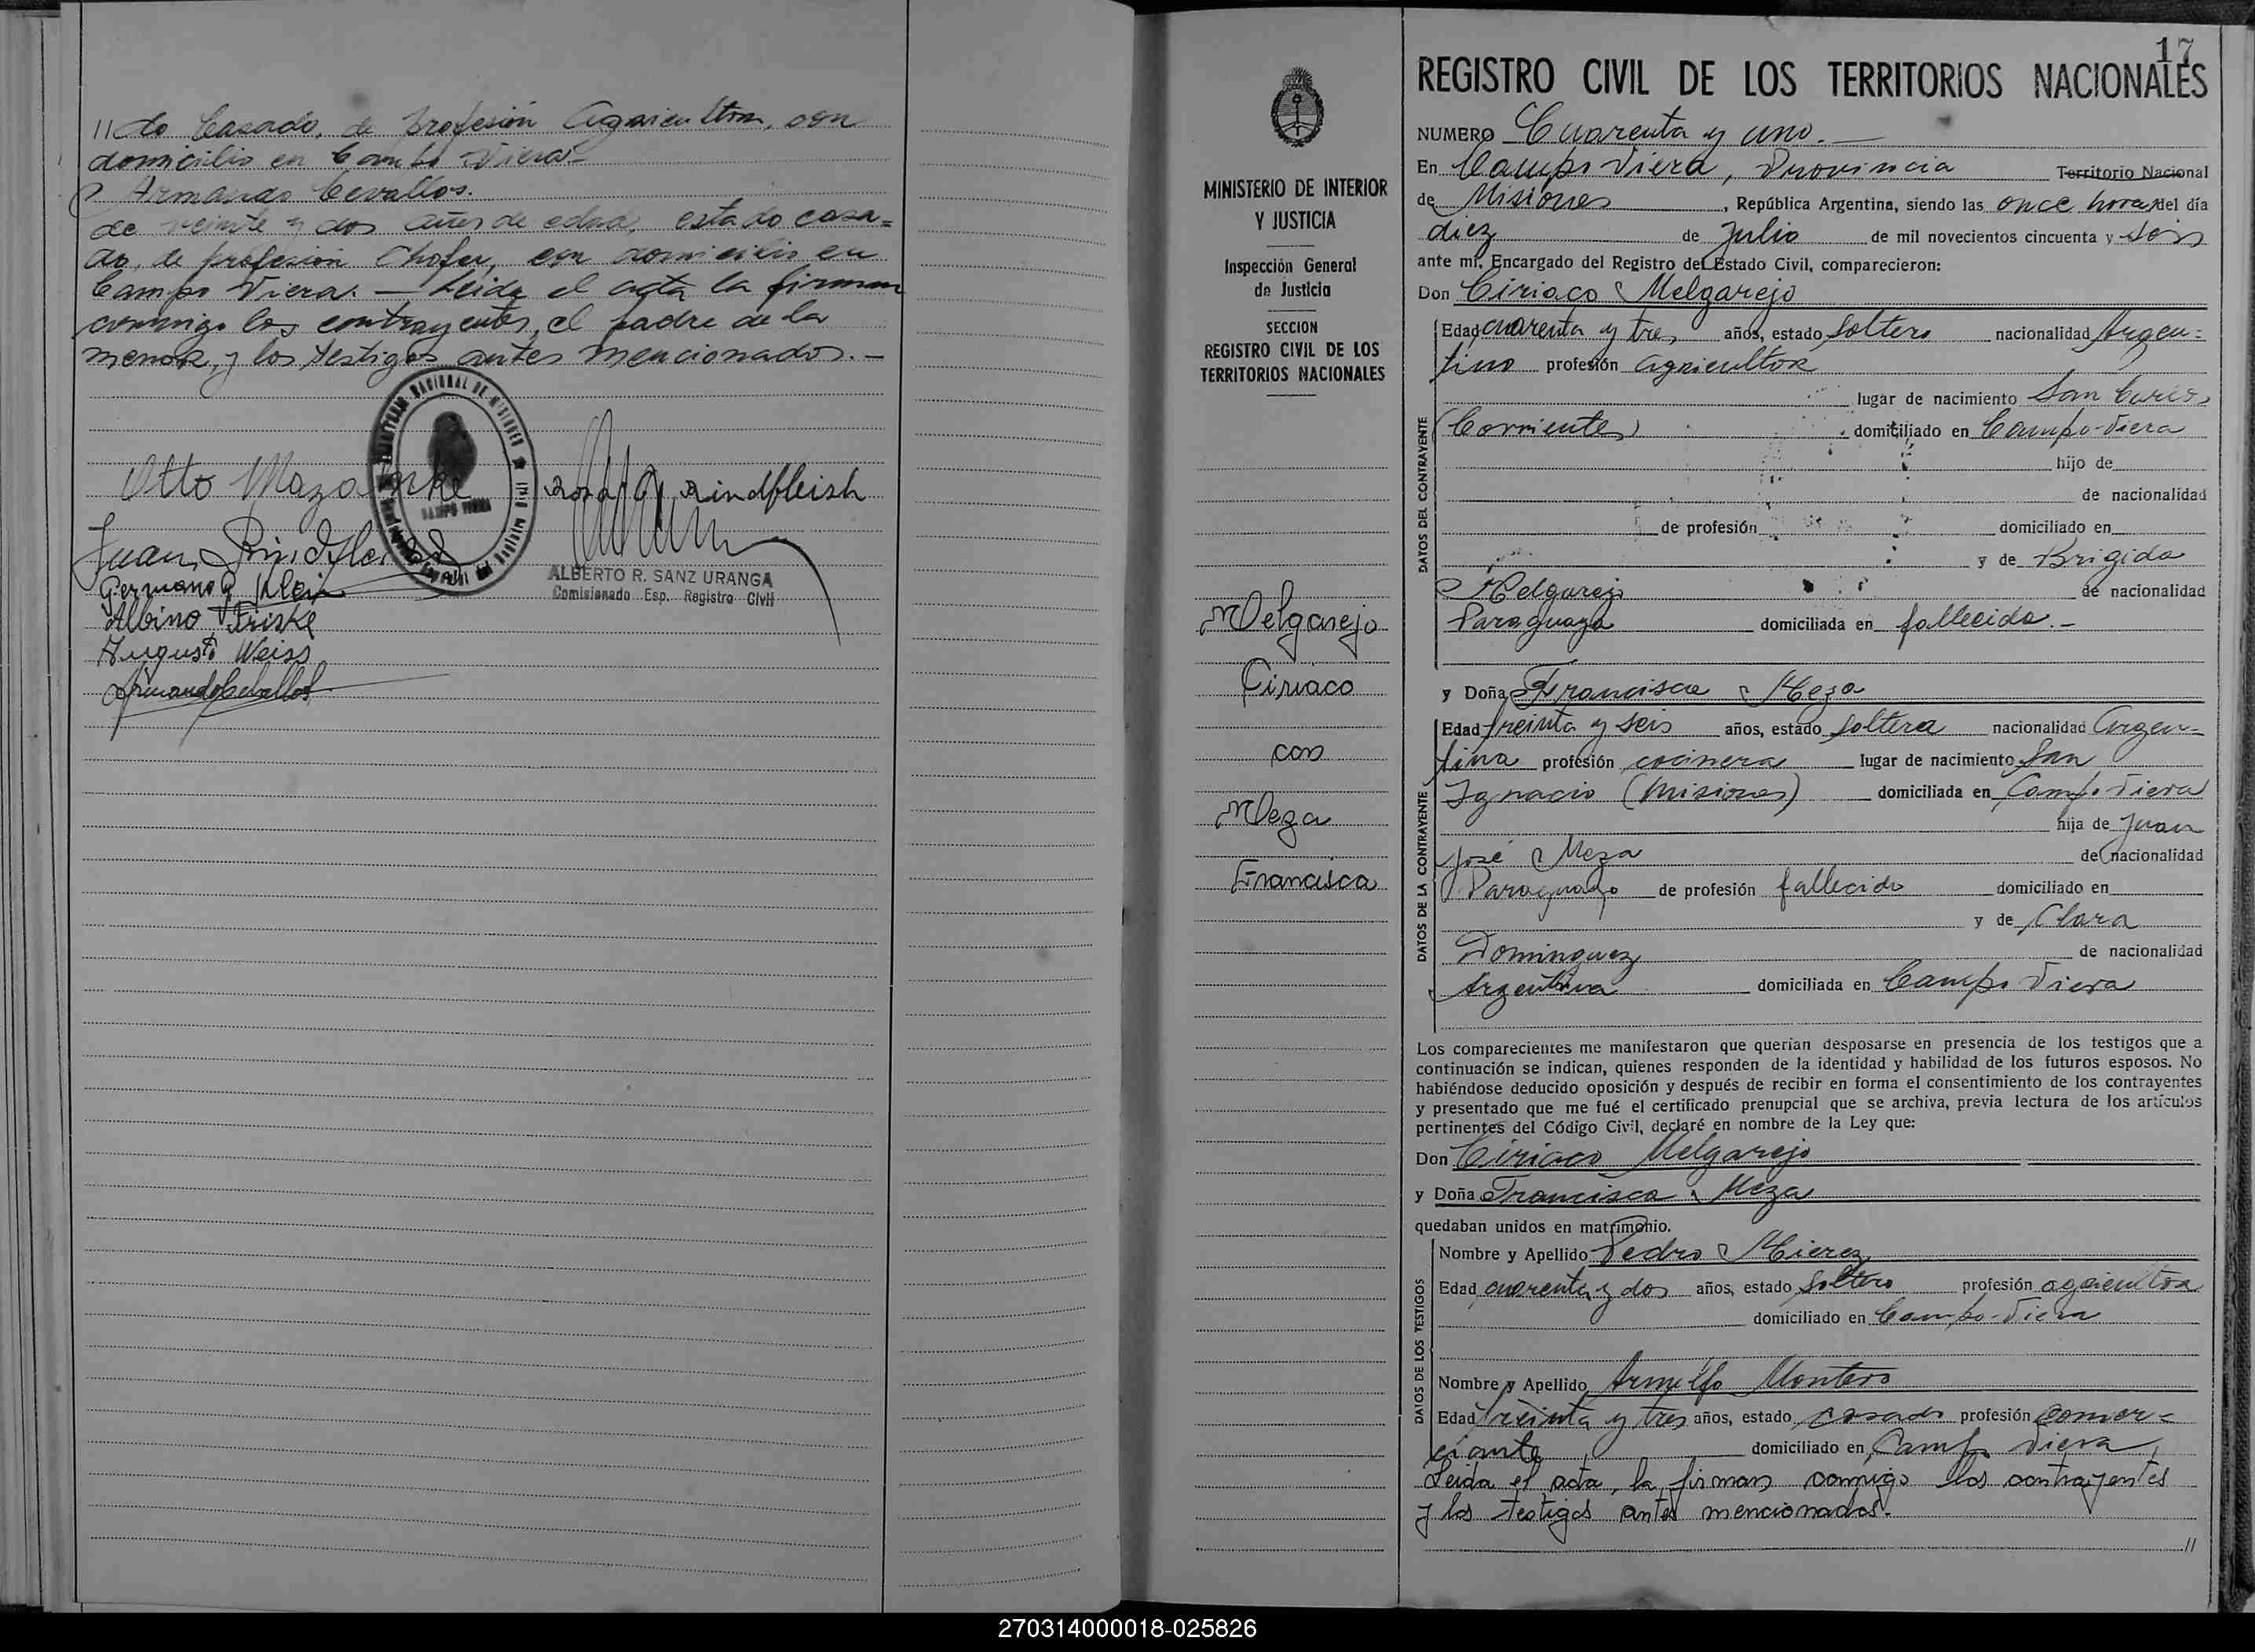 //do Casado, de profesión Agricultor, con
domicilio en Campo Viera-
Armando Cevallos.
de veinte y dos años de edad, estado casa=
do, de profesión Chofer, con domicilio en
Campo Viera. — Leida el acta la firman
conmigo los contrayentes, el padre de la
menor, y los testigos antes mencionados. —
Otto Maza
Rosa Rindfleish
Juan Rindfleisch
ALBERTO R. SANZ URANGA
Comisionado Esp. Registro Civil
Germano Klein
Albino Friske
Augusto Weiss
Armando Cevallos
CAMPO VIERA
MINISTERIO DE INTERIOR
Y JUSTICIA
Inspección General
de Justicia
SECCION
REGISTRO CIVIL DE LOS
TERRITORIOS NACIONALES
Melgarejo
Ciriaco
con
Meza
Francisca
17
REGISTRO CIVIL DE LOS TERRITORIOS NACIONALES
NUMERO Cuarenta y uno. —
En Campo Viera, Provincia Territorio Nacional
de Misiones, República Argentina, siendo las once horas del día
diez de Julio de mil novecientos cincuenta y seis
ante mí, Encargado del Registro del Estado Civil, comparecieron:
Don Ciriaco Melgarejo
DATOS DEL CONTRAYENTE
Edad cuarenta y tres años, estado soltero nacionalidad Argen=
tino profesión agricultor
lugar de nacimiento San Carlos
(Corrientes) domiciliado en Campo-Viera
hijo de
de nacionalidad
de profesión domiciliado en
y de Brigida
Melgarejo de nacionalidad
Paraguaya domiciliada en fallecida. —
y Doña Francisca Meza
DATOS DE LA CONTRAYENTE
Edad treinta y seis años, estado soltera nacionalidad Argen=
tina profesión cocinera lugar de nacimiento San
Ignacio (Misiones) domiciliada en Campo Viera
hija de Juan
José Meza de nacionalidad
Paraguayo de profesión fallecido domiciliado en
y de Clara
Dominguez de nacionalidad
Argentina domiciliada en Campo Viera
Los comparecientes me manifestaron que querían desposarse en presencia de los testigos que a
continuación se indican, quienes responden de la identidad y habilidad de los futuros esposos. No
habiéndose deducido oposición y después de recibir en forma el consentimiento de los contrayentes
y presentado que me fué el certificado prenupcial que se archiva, previa lectura de los artículos
pertinentes del Código Civil, declaré en nombre de la Ley que:
Don Ciriaco Melgarejo
y Doña Francisca Meza
quedaban unidos en matrimonio.
DATOS DE LOS TESTIGOS
Nombre y Apellido Pedro Mierez
Edad cuarenta y dos años, estado soltero profesión agricultor
domiciliado en Campo-Viera
Nombre y Apellido Arnulfo Montero
Edad treinta y tres años, estado casado profesión comer=
ciante domiciliado en Campo Viera,
Leida el acta, la firman conmigo los contrayentes
y los testigos antes mencionados.
//
270314000018-025826